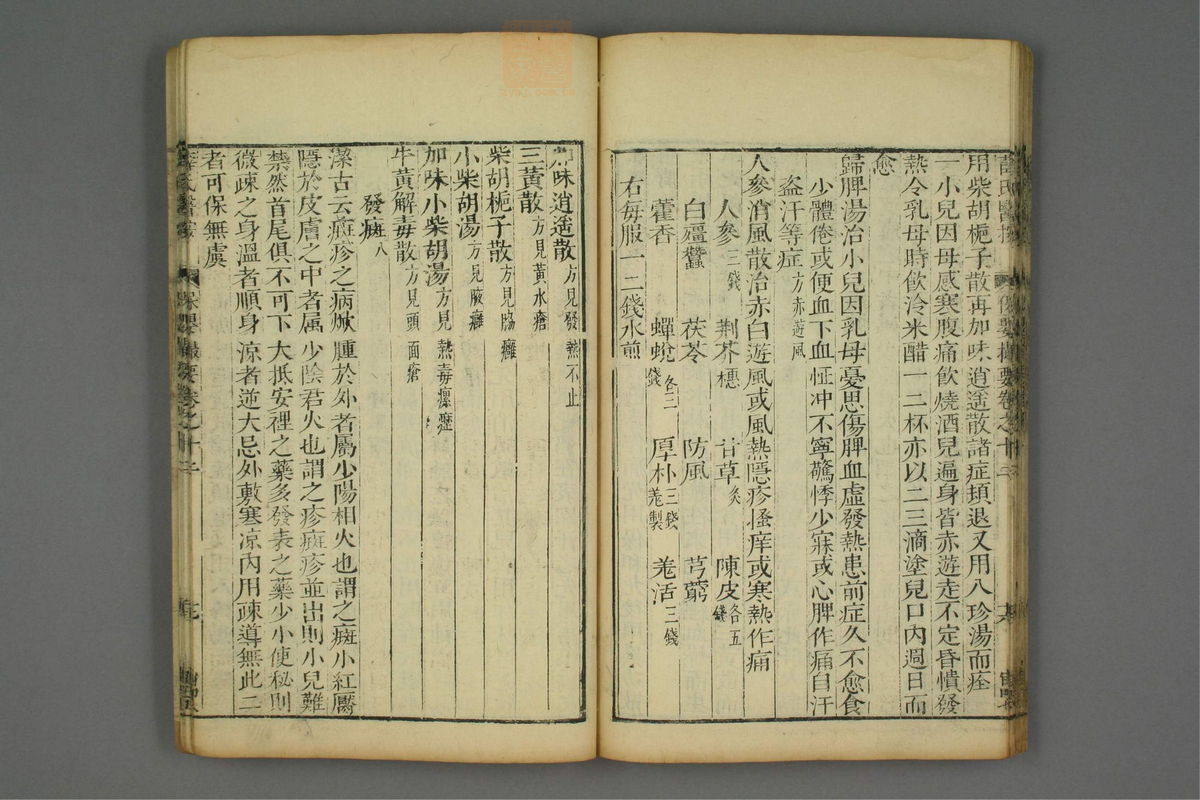 薛氏醫按 保嬰撮要卷之十二
用柴胡梔子散再加味逍遥散諸症頓退又用八珍湯而痊
一小兒因母感寒腹痛飲燒酒兒遍身皆赤遊走不定昏憒發
熱令乳母時飲冷米醋一二杯亦以二三滴塗兒口内週日而
愈
歸脾湯治小兒因乳母憂思傷脾血虛發熱患前症久不愈食
少體倦或便血下血怔冲不寧驚悸少寐或心脾作痛自汗
盗汗等症方赤遊風
人參消風散治赤白遊風或風熱隱疹搔痒或寒熱作痛
人參三錢 荆芥穗 甘草炙 陳皮各五錢
白殭蠶 茯苓 防風 芎藭
藿香 蟬蛻各二錢 厚朴三錢姜製 羌活三錢
右每服一二錢水煎
加味逍遥散方見發熱不止
三黄散方見黄水瘡
柴胡梔子散方見脇癰
小柴胡湯方見腋癰
加味小柴胡湯方見熱毒瘰癧
牛黄解毒散方見頭面瘡
發癍八
潔古云癍疹之病焮腫於外者屬少陽相火也謂之癍小紅靨
隱於皮膚之中者属少陰君火也謂之疹癍疹並出則小兒難
禁然首尾俱不可下大抵安裡之藥多發表之藥少小便秘則
微疎之身溫者順身凉者逆大忌外敷寒凉内用疎導無此二
者可保無虞
薛氏醫按 保嬰撮要卷之十二